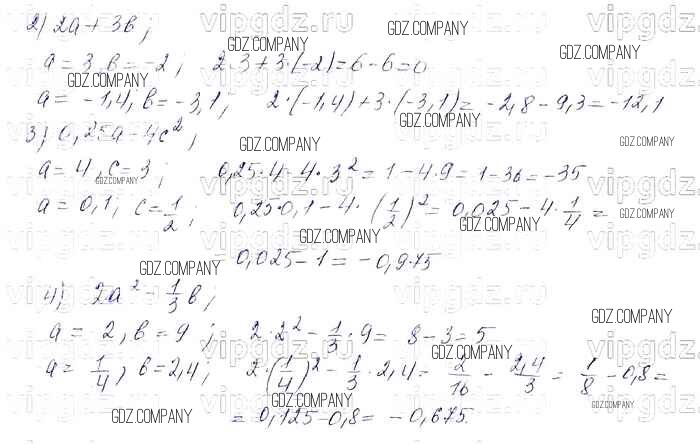 2) 2a + 3b ;
a = 3, b = -2 ; 2·3 + 3·(-2) = 6 - 6 = 0
a = -1,4; b = -3,1 ; 2·(-1,4) + 3·(-3,1) = -2,8 - 9,3 = -12,1
3) 0,25a - 4c² ;
a = 4, c = 3 ; 0,25·4 - 4·3² = 1 - 4·9 = 1 - 36 = -35
a = 0,1; c = 1/2 ; 0,25·0,1 - 4·(1/2)² = 0,025 - 4·1/4 =
= 0,025 - 1 = -0,975
4) 2a² - 1/3 b ;
a = 2, b = 9 ; 2·2² - 1/3·9 = 8 - 3 = 5
a = 1/4, b = 2,4; 2·(1/4)² - 1/3·2,4 = 2/16 - 2,4/3 = 1/8 - 0,8 =
= 0,125 - 0,8 = -0,675.